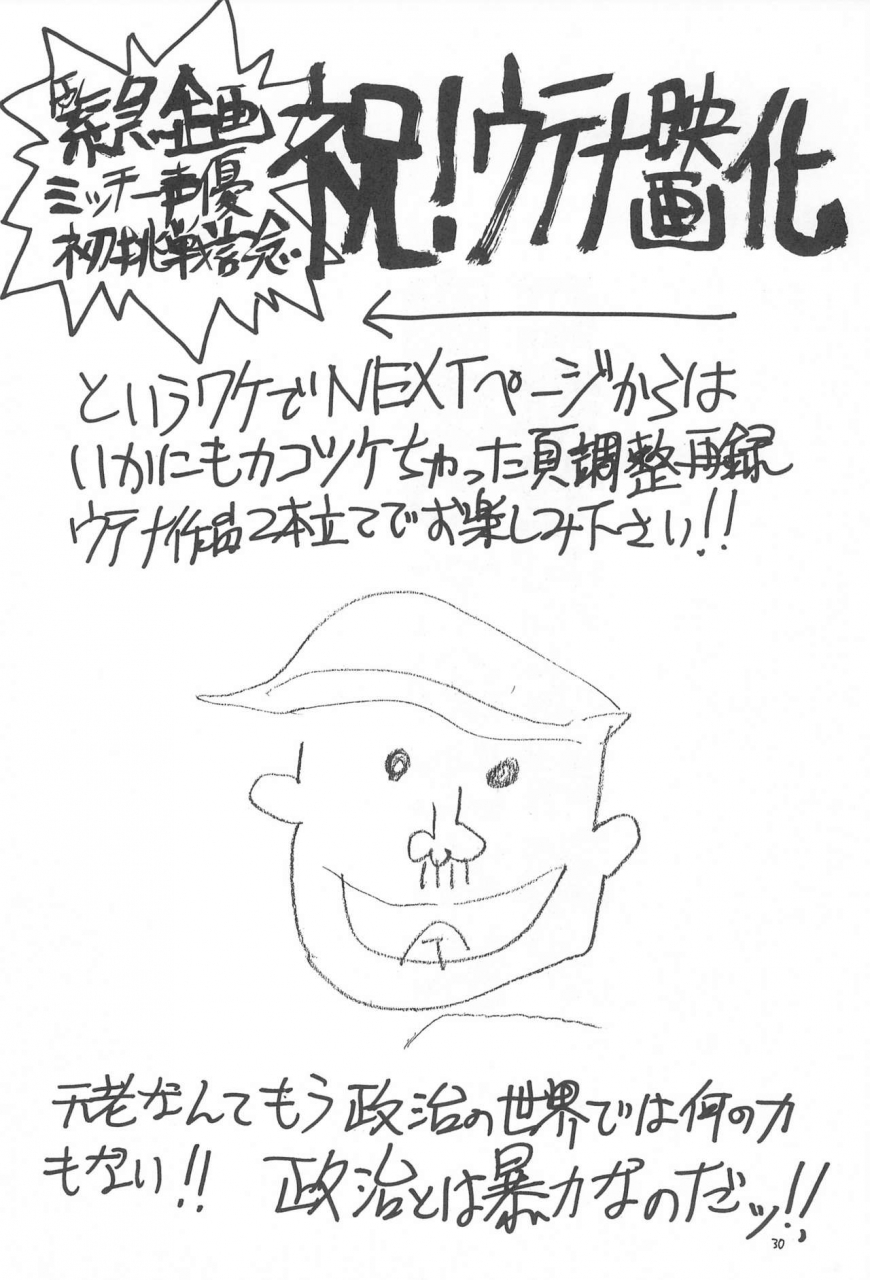 祝!ウテナ映画化
緊急企画
ミッチー声優
初挑戦記念
というワケでNEXTページからは
いかにもカコツケちゃった頁調整再録
ウテナ作品2本立てでお楽しみ下さい!!
元老なんてもう政治の世界では何の力
もない!! 政治とは暴力なのだッ!!
30